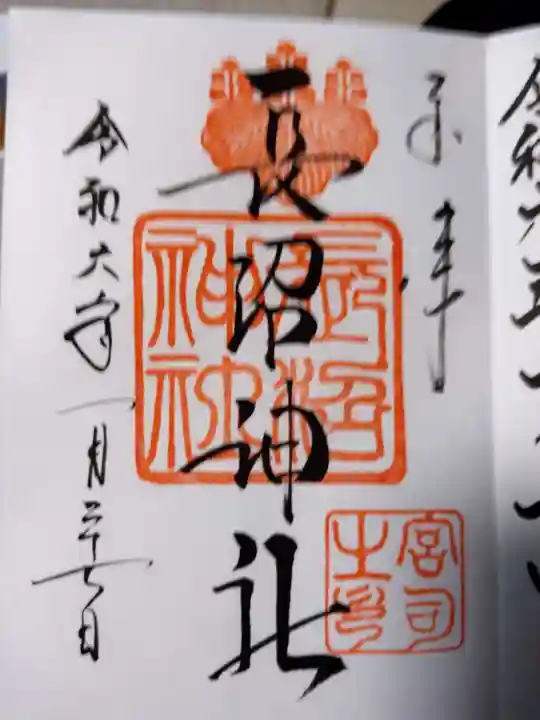 奉拝
長沼神社
令和六年一月二十七日
長沼神社
宮司之印